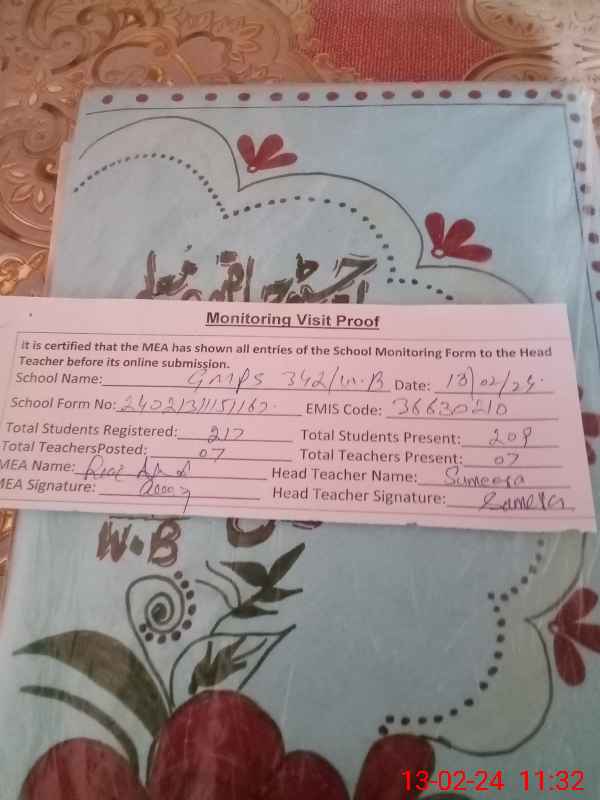 Monitoring Visit Proof
it is certified that the MEA has shown all entries of the School Monitoring Form to the Head
Teacher before its online submission.
School Name: GMPS 342/W.B Date: 13/02/24.
School Form No: EMIS Code: 36630210
Total Students Registered: 217 Total Students Present: 209
Total TeachersPosted: 07 Total Teachers Present: 07
MEA Name: Head Teacher Name: Sumeera
MEA Signature: Head Teacher Signature:
W.B
13-02-24 11:32